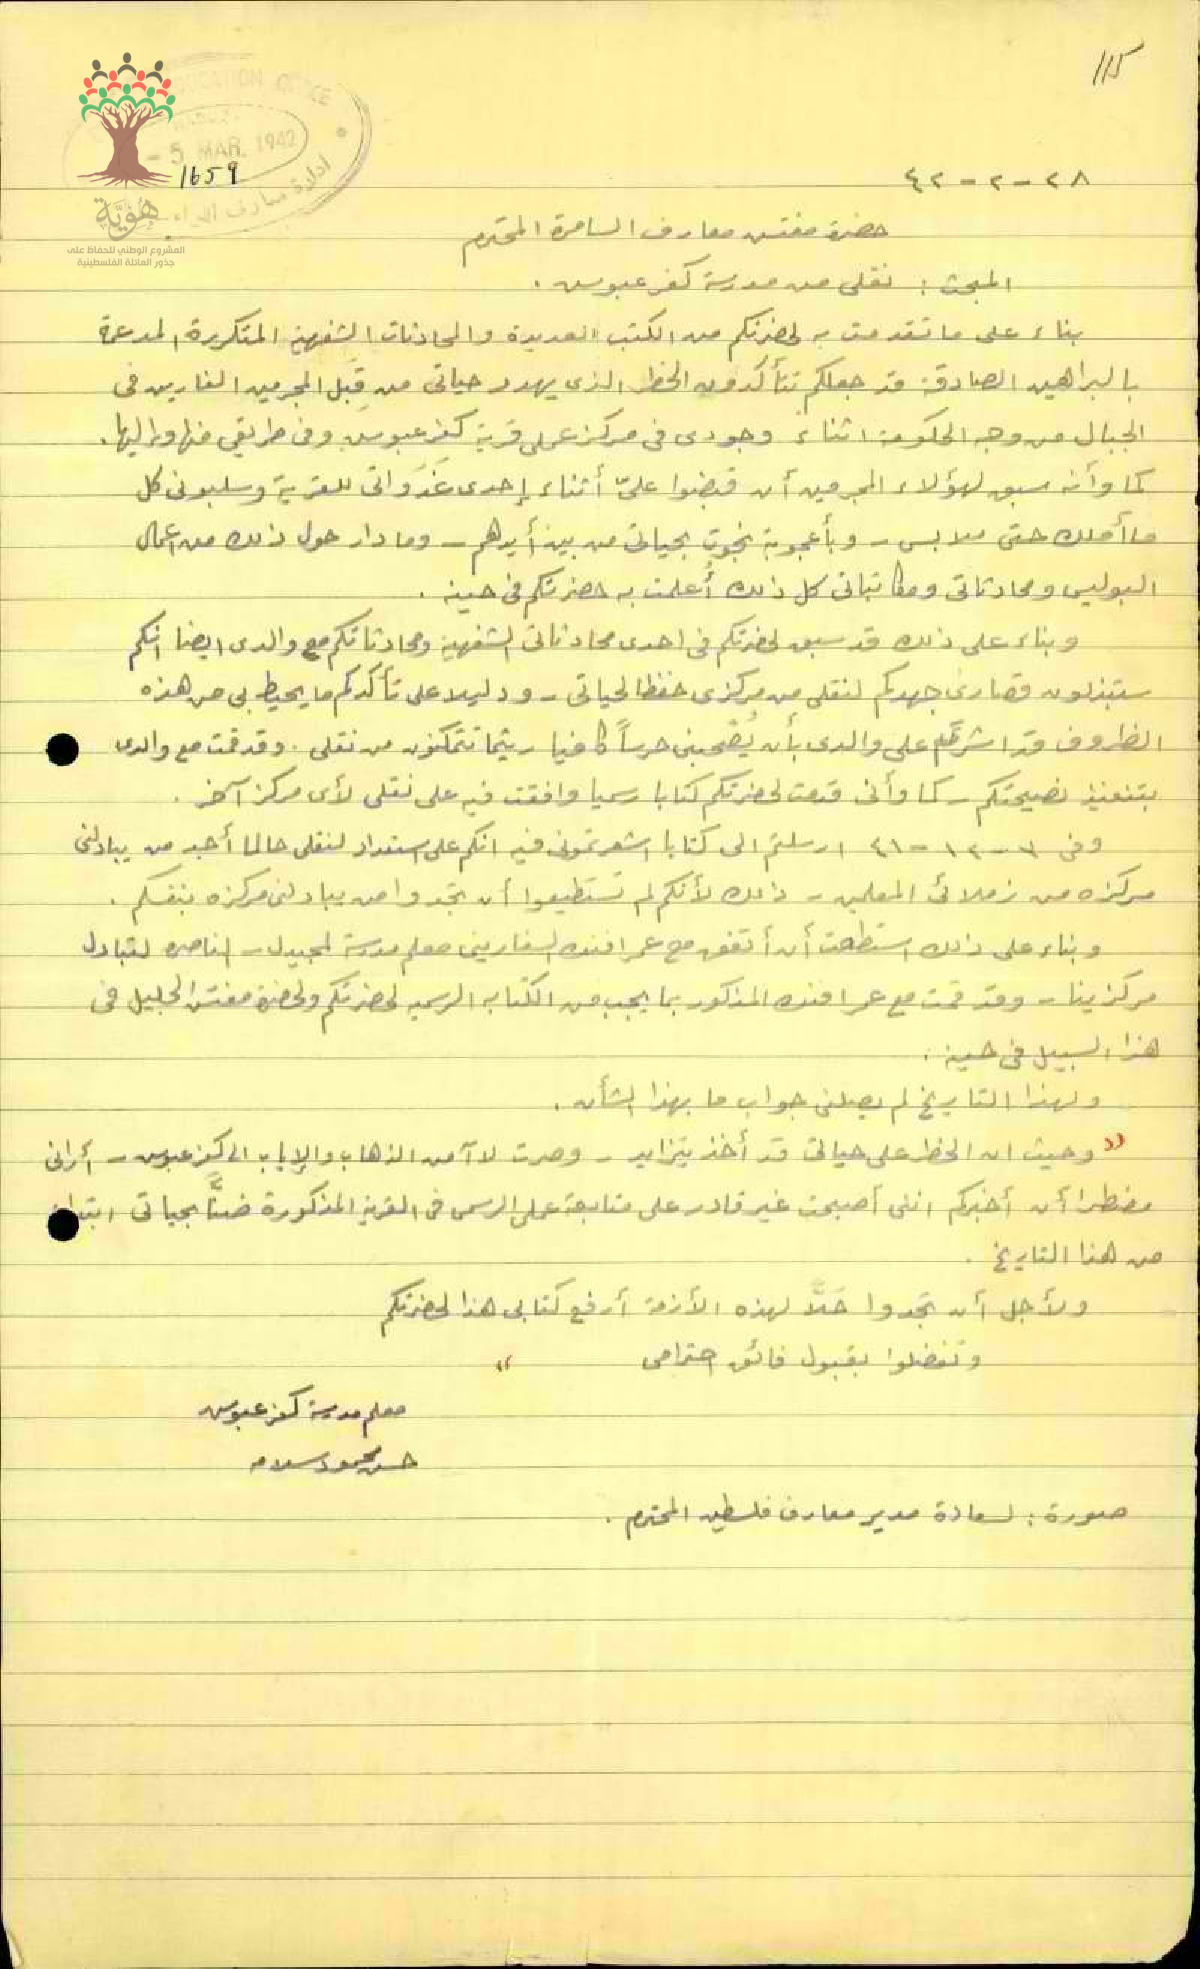 115
EDUCATION OFFICE
- 5 MAR. 1942
ادارة معارف
1659
هُوِيَّة
المشروع الوطني للحفاظ على
جذور العائلة الفلسطينية
٢٨ - ٢ - ٤٢
حضرة مفتش معارف السامرة المحترم
المبحث : نقلي من مدرسة كفر عبوس .
بناء على ما تقدمت به لحضرتكم من الكتب العديدة والمحادثات الشفهية المتكررة المدعمة
بالبراهين الصادقة قد جعلكم تتأكدون الخطر الذي يهدد حياتي من قِبَل المجرمين الفارين في
الجبال من وجه الحكومة اثناء وجودي في مركز عملي قرية كفر عبوس وفي طريقي منها واليها .
كما وأنه سبق لهؤلاء المجرمين أن قبضوا عليّ أثناء إحدى غَدَواتي للقرية وسلبوني كل
ما أملك حتى ملابسي - وبأعجوبة نجوت بحياتي من بين أيدهم - وما دار حول ذلك من اعمال
البوليس ومحادثاتي ومكاتباتي كل ذلك أُعلمت به حضرتكم في حينه .
وبناء على ذلك قد سبق لحضرتكم في احدى محادثاتي الشفهية ومحادثاتكم مع والدي ايضا انكم
ستبذلون قصارى جهدكم لنقلي من مركزي حفظا لحياتي - ودليلا على تأكدكم ما يحيط بي من هذه
الظروف قد اشرتم على والدي بأن يُصحبني حرساً كافيا ريثما تتمكنون من نقلي . وقد قمت مع والدي
بتنفيذ نصيحتكم - كما وأني قدمت لحضرتكم كتابا رسميا وافقت فيه على نقلي لأي مركز آخر .
وفي ٧ - ١٢ - ٤١ ارسلتم الي كتابا اشعرتموني فيه انكم على استعداد لنقلي حالما أجد من يبادلني
مركزه من زملائي المعلمين - ذلك لأنكم لم تستطيعوا أن تجدوا من يبادلني مركزه بنفسكم .
وبناء على ذلك استطعت أن أتفق مع عمر افندي السفاريني معلم مدرسة المجيدل - الناصره لتبادل
مركزينا - وقد قمت مع عمر افندي المذكور بما يجب من الكتابه الرسميه لحضرتكم ولحضرة مفتش الجليل في
هذا السبيل في حينه .
ولهذا التاريخ لم يصلني جواب ما بهذا الشأن .
" وحيث ان الخطر على حياتي قد أخذ يتزايد - وصرت لا آمن الذهاب والإياب الى كفر عبوس - أراني
مضطرا أن أخبركم انني أصبحت غير قادر على متابعة عملي الرسمي في القرية المذكورة ضنّاً بحياتي ابتداء
من هذا التاريخ .
ولأجل أن تجدوا حَلّاً لهذه الأزمة أرفع كتابي هذا لحضرتكم
وتفضلوا بقبول فائق احترامي "
معلم مدرسة كفر عبوس
حسن محمود سلامه
صورة : لسعادة مدير معارف فلسطين المحترم .